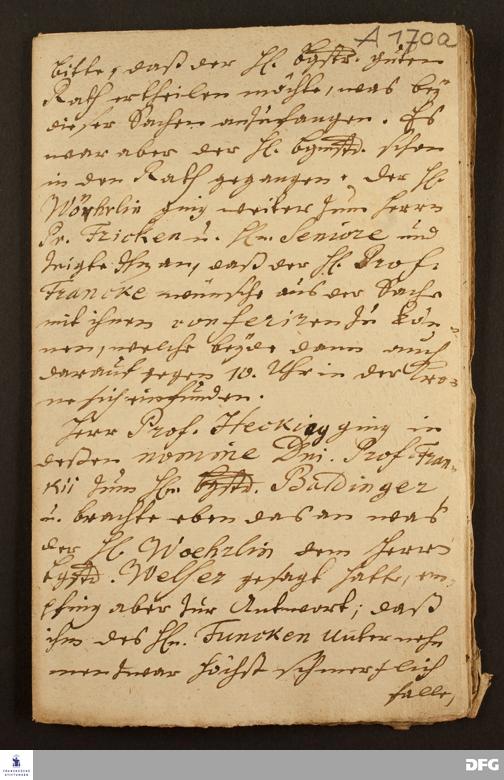 A 170a
bitte, daß der H. bgstr. guten
Rath ertheilen möchte, was bey
dieser Sachen anzufangen. Es
war aber der H. bgmstr. schon
in den Rath gegangen. Der H.
Wöhrlin ging weiter zum Herrn
Pr. Fricken u. Hn. Seniore und
zeigte Ihn an, daß der H. Prof.
Francke wünsche aus der Sache
mit ihnen conferiren zu kön-
nen, welche beyde dann auch
darauf gegen 10. Uhr in der Cro-
ne sich einfunden.
Herr Prof. Hecking ging in
deßen nomine Dni. Prof. Fran-
kii zum Hn. bgstr. Baldinger
u. brachte eben das an was
der H. Woehrlin dem Herrn
bgstr. Welser gesagt hatte, em-
pfing aber zur Antwort; daß
ihm des Hn. Funcken Unterneh-
men zwar höchst schmertzlich
falle,
FRANCKESCHE
STIFTUNGEN
DFG